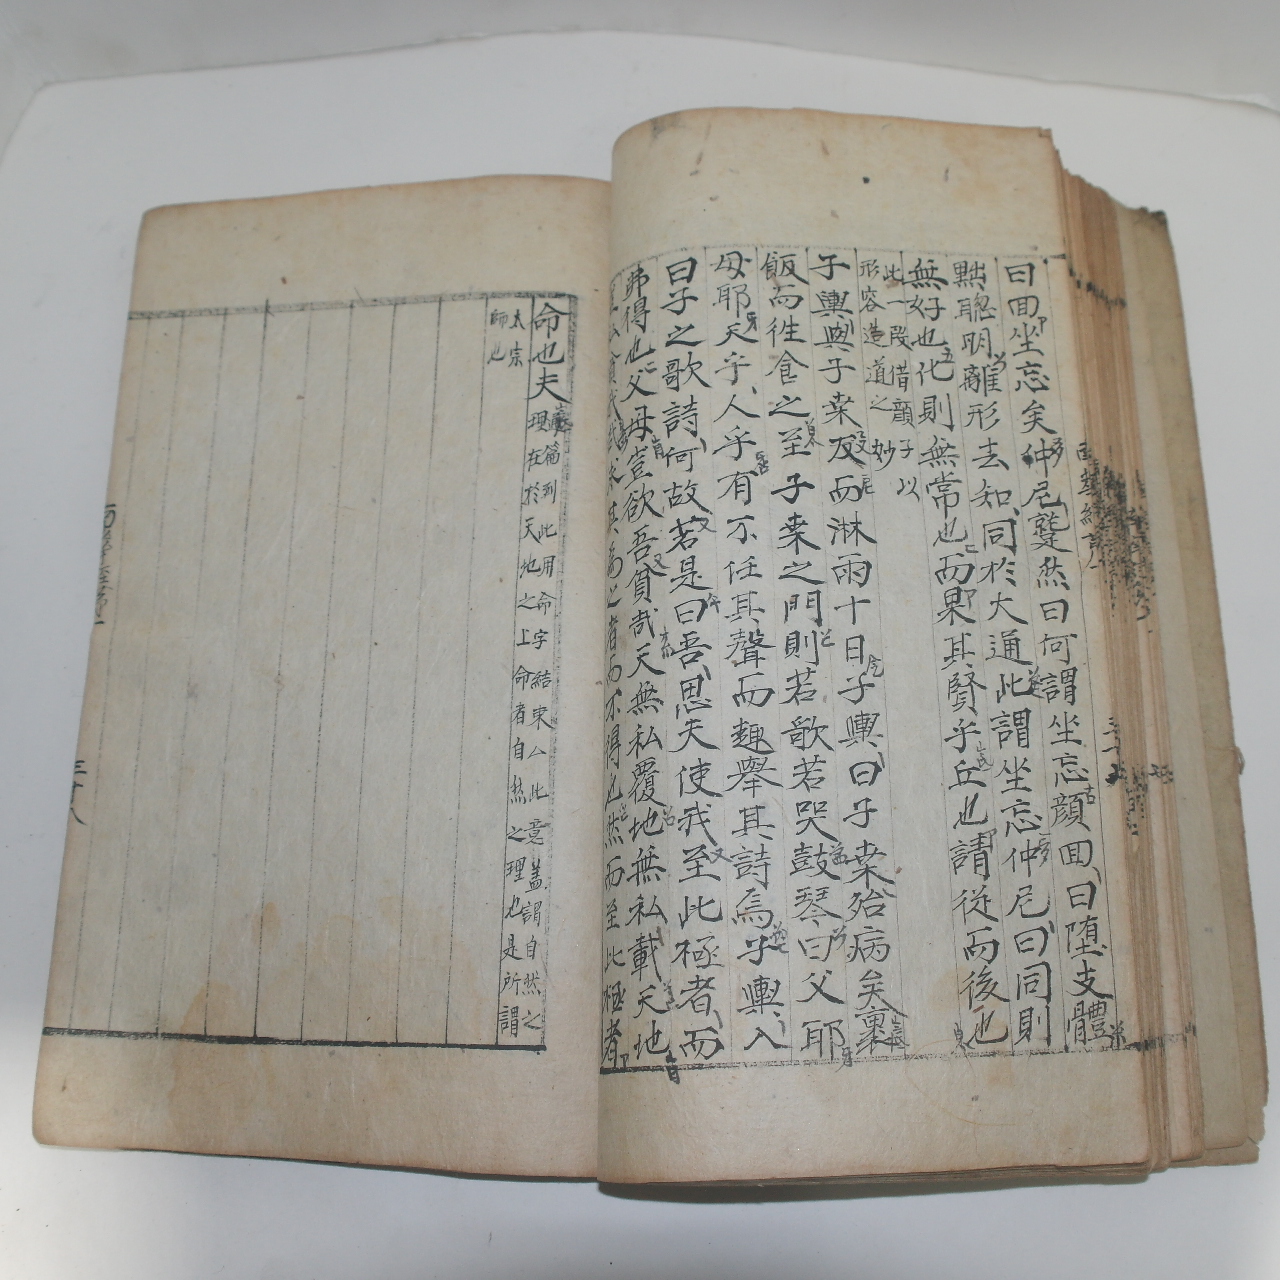 曰回坐忘矣仲尼蹵然曰何謂坐忘顔回曰堕支體
黜聰明離形去知同於大通此謂坐忘仲尼曰同則
無好也化則無常也而果其賢乎丘也請從而後也
此一段借顔子以
形容造道之妙
子輿與子桒友而淋雨十日子輿曰子桒殆病矣裹
飯而徃食之至子桒之門則若歌若哭鼓琴曰父耶
母耶天乎人乎有不任其聲而趣舉其詩焉子輿入
曰子之歌詩何故若是曰吾思夫使我至此極者而
弗得也父母豈欲吾貧哉天無私覆地無私載天地
貧我哉求其為之者而不得也然而至此極者
命也夫
此篇到此用命字結束以此意盖謂自然之
理在於天地之上命者自然之理也是所謂
太宗
師也
三十八